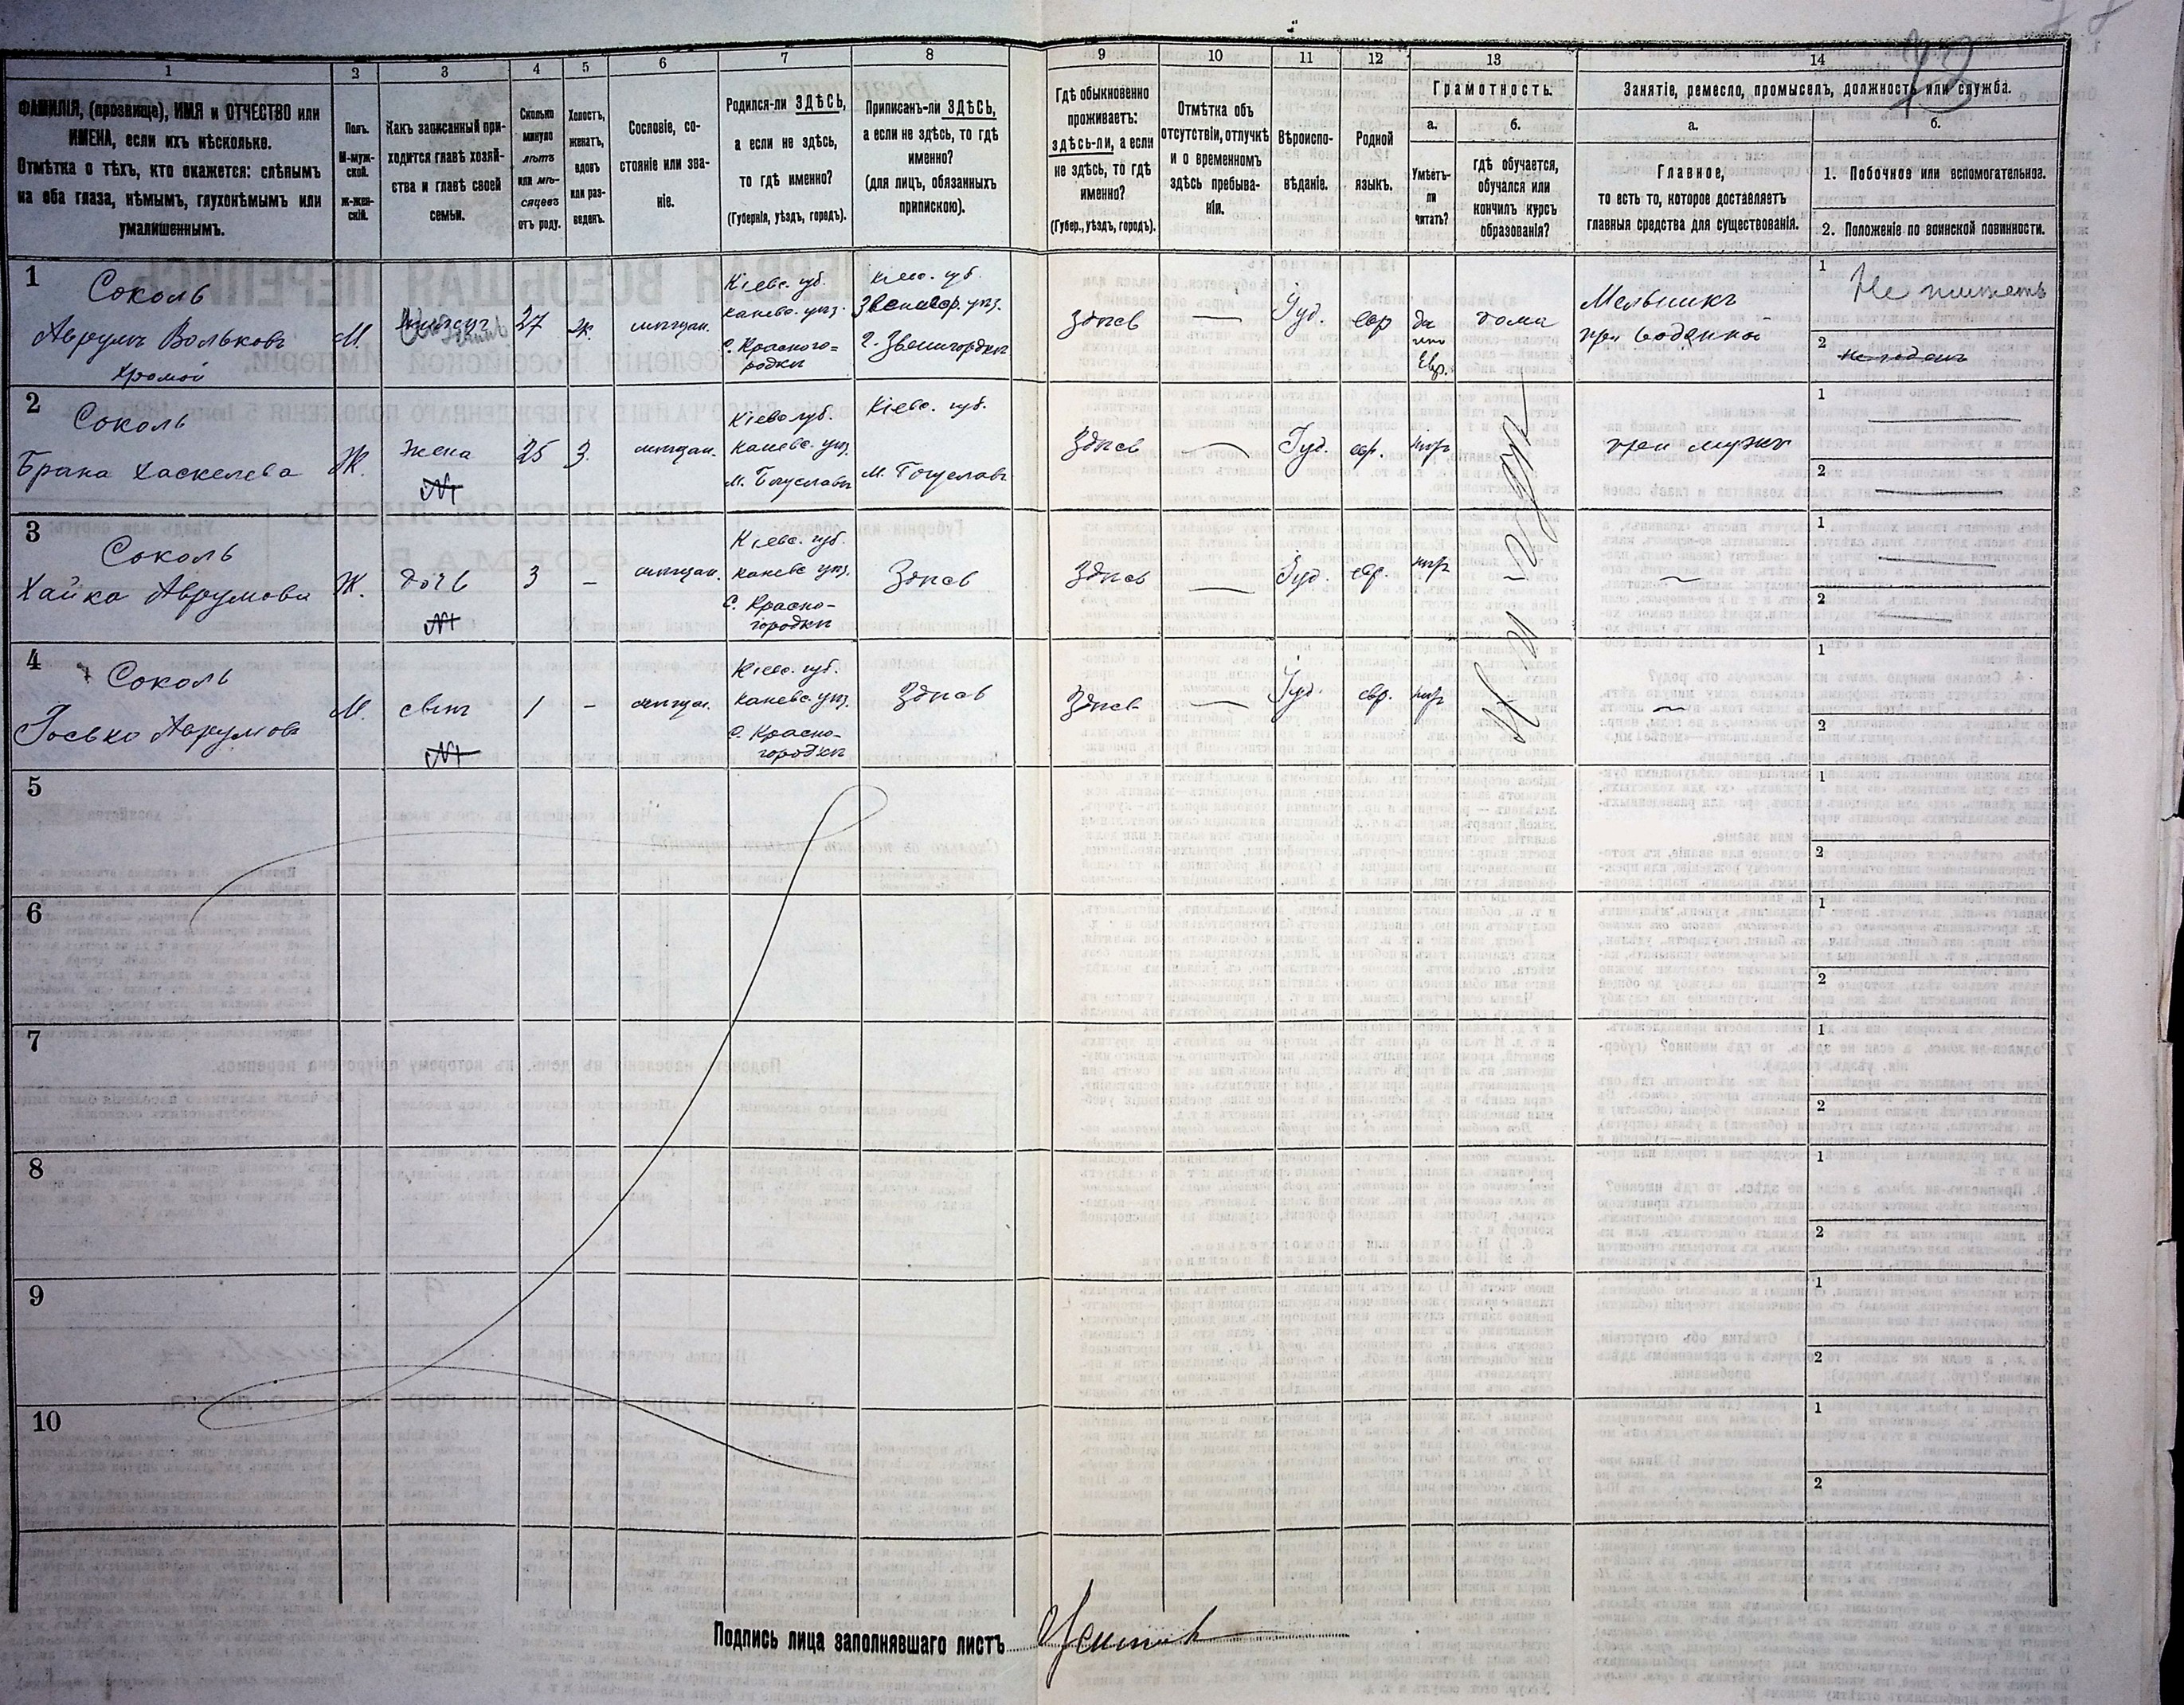 1 2 3 4 5 6 7 8 9 10 11 12 13 14
ФАМИЛІЯ, (прозвище), ИМЯ и ОТЧЕСТВО или
ИМЕНА, если ихъ нѣсколько.
Отмѣтка о тѣхъ, кто окажется: слѣпымъ
на оба глаза, нѣмымъ, глухонѣмымъ или
умалишеннымъ.
Полъ.
М-муж-
ской.
ж-жен-
скій.
Какъ записанный при-
ходится главѣ хозяй-
ства и главѣ своей
семьи.
Сколько
минуло
лѣтъ
или мѣ-
сяцевъ
отъ роду.
Холостъ,
женатъ,
вдовъ
или раз-
веденъ.
Сословіе, со-
стояніе или зва-
ніе.
Родился-ли ЗДѢСЬ,
а если не здѣсь,
то гдѣ именно?
(Губернія, уѣздъ, городъ).
Приписанъ-ли ЗДѢСЬ,
а если не здѣсь, то гдѣ
именно?
(для лицъ, обязанныхъ
припискою).
Гдѣ обыкновенно
проживаетъ:
здѣсь-ли, а если
не здѣсь, то гдѣ
именно?
(Губер., уѣздъ, городъ).
Отмѣтка объ
отсутствіи, отлучкѣ
и о временномъ
здѣсь пребыва-
ніи.
Вѣроиспо-
вѣданіе.
Родной
языкъ.
Грамотность.
а.
Умѣетъ-
ли
читать?
б.
гдѣ обучается,
обучался или
кончилъ курсъ
образованія?
Занятіе, ремесло, промыселъ, должность или служба.
а.
Главное,
то есть то, которое доставляетъ
главныя средства для существованія.
б.
1. Побочное или вспомогательное.
2. Положеніе по воинской повинности.
1
Соколь
Аврумъ Вольковъ
хромой
М.
27
ж.
мѣщан.
Кіевс. губ.
Каневс. уѣз.
с. Красного=
родки
Кіевс. губ.
Звенигор. уѣз.
г. Звенигородки
Здѣсь
Іуд.
евр
да
по
Евр.
дома
Мельникъ
при водяной
1
Не
2
2
Соколь
Брана Хаскелева
Ж.
жена
25
З.
мѣщан.
Кіевс губ.
Каневс. уѣз.
м. Богуславъ
Кіевс. губ.
м. Богуславъ
Здѣсь
Іуд.
евр.
нѣт
при мужѣ
1
2
3
Соколь
Хайка Аврумова
Ж.
дочь
3
–
мѣщан.
Кіевс. губ.
Каневс уѣз.
с. Красно-
городки
Здѣсь
Здѣсь
Іуд.
евр.
нѣт
1
2
4
Соколь
Іосько Аврумовъ
М.
сынъ
1
–
мѣщан.
Кіевс. губ.
Каневс. уѣз.
с. Красно-
городки
Здѣсь
Здѣсь
Іуд.
евр.
нѣт
1
2
5
1
2
6
1
2
7
1
2
8
1
2
9
1
2
10
1
2
Подпись лица заполнявшаго листъ